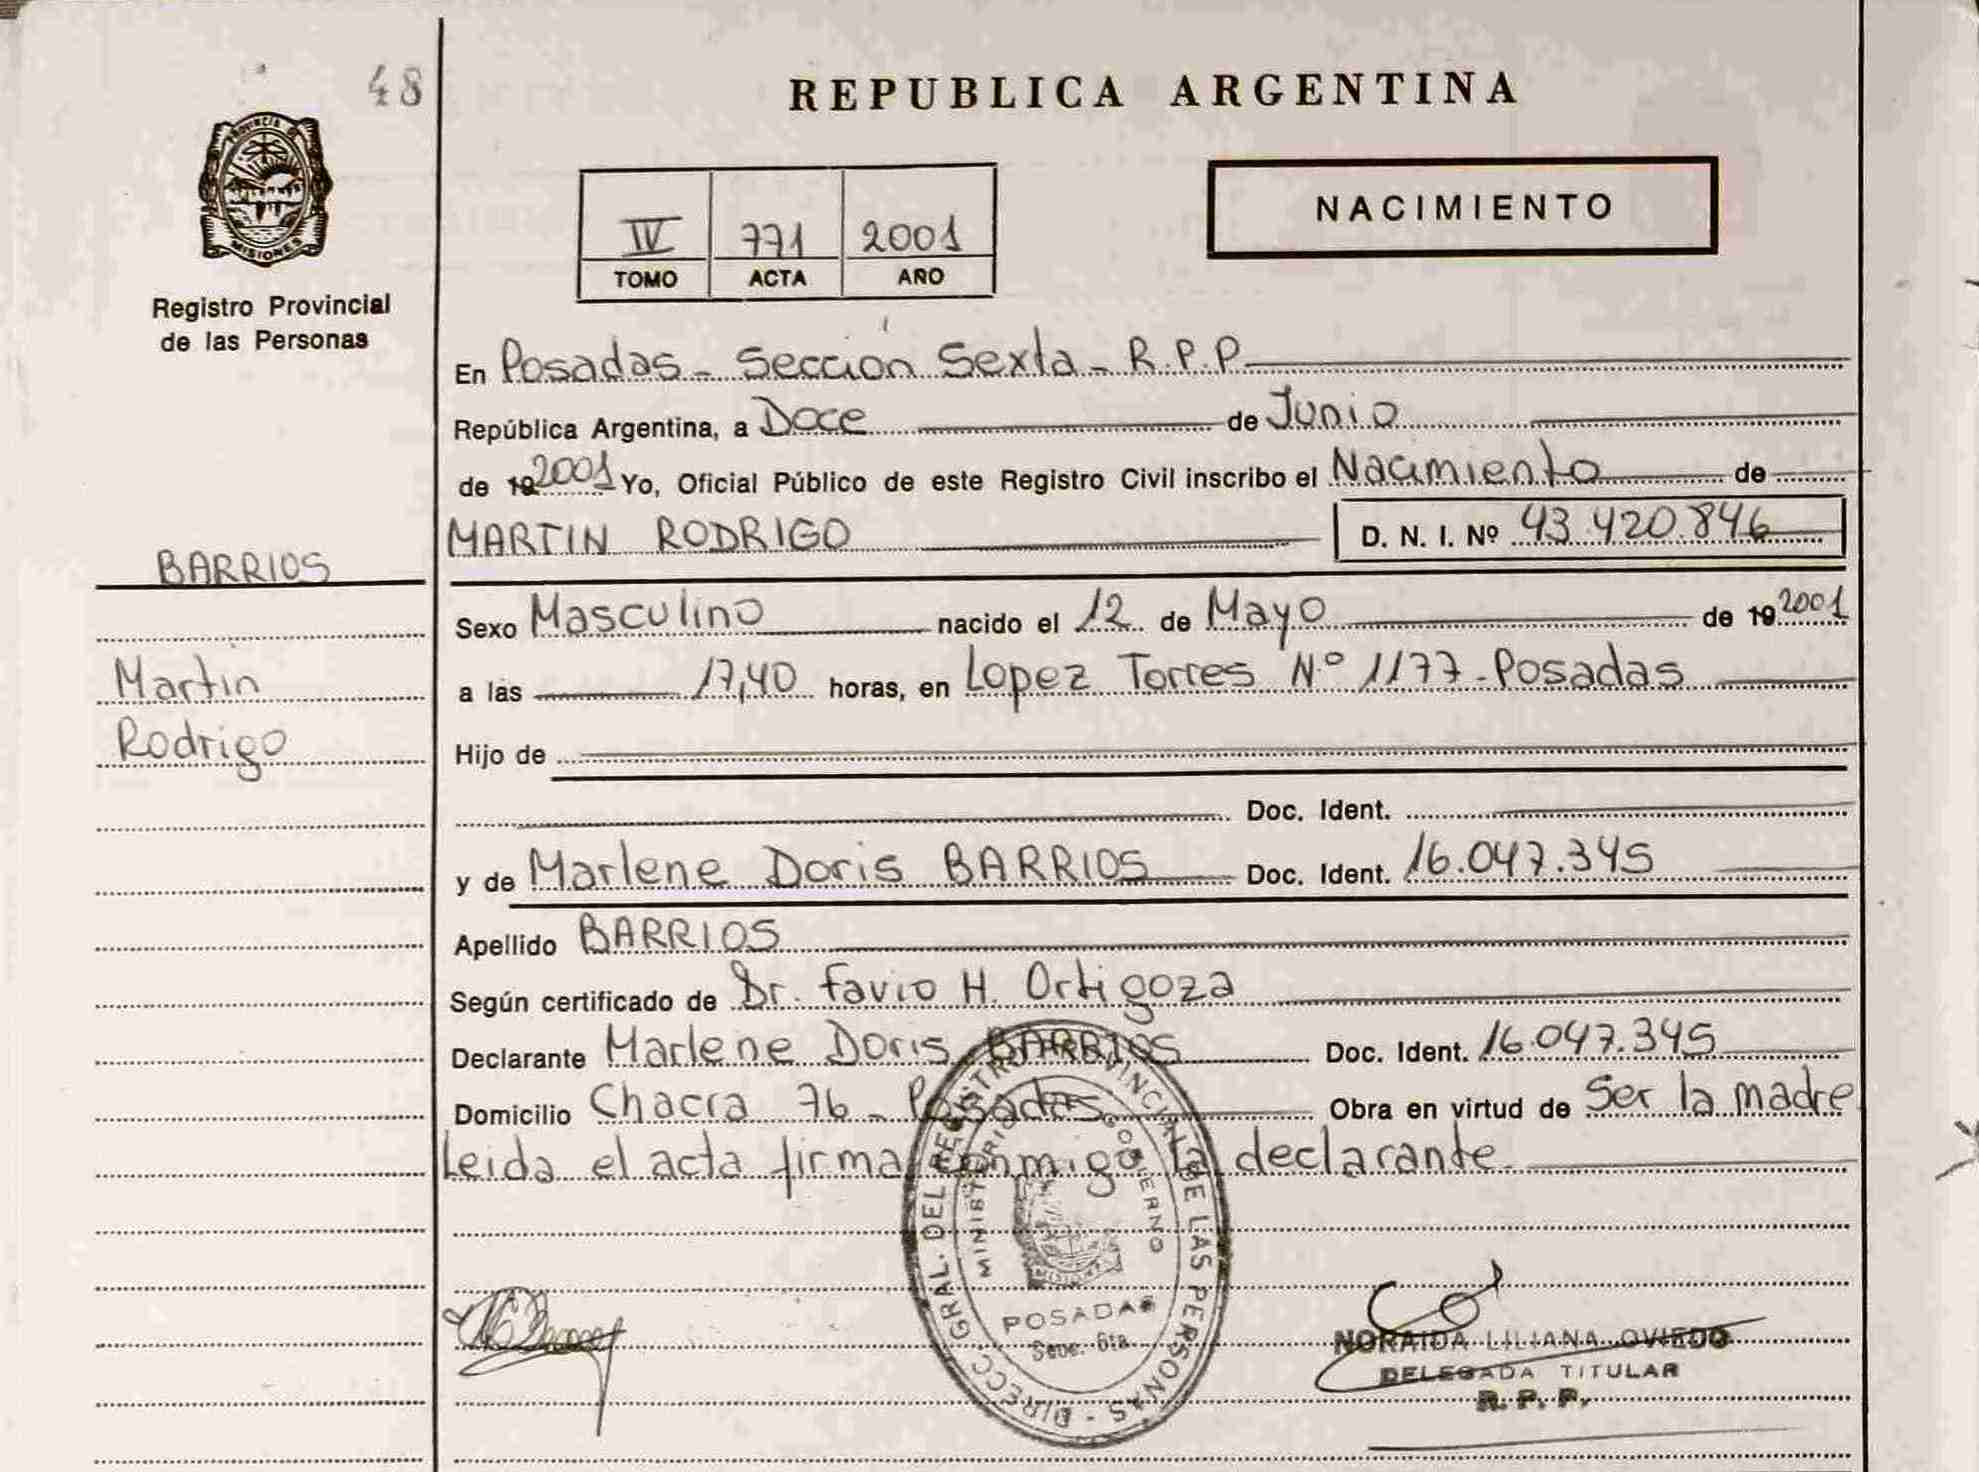 48
REPUBLICA ARGENTINA
PROVINCIA DE
MISIONES
Registro Provincial
de las Personas
NACIMIENTO
IV 771 2001
TOMO ACTA AÑO
En Posadas - Sección Sexta - R.P.P
República Argentina, a Doce de Junio
de 19 2001 Yo, Oficial Público de este Registro Civil inscribo el Nacimiento de
MARTIN RODRIGO D. N. I. Nº 43.420.846
BARRIOS
Martin
Rodrigo
Sexo Masculino nacido el 12 de Mayo de 19 2001
a las 17,40 horas, en Lopez Torres N.º 1177 - Posadas
Hijo de
Doc. Ident.
y de Marlene Doris BARRIOS Doc. Ident. 16.047.345
Apellido BARRIOS
Según certificado de Dr. Favio H. Ortigoza
Declarante Marlene Doris BARRIOS Doc. Ident. 16.047.345
Domicilio Chacra 76 - Posadas Obra en virtud de Ser la madre
Leida el acta firma conmigo la declarante
DIRECC. GRAL. DEL REGISTRO PROVINCIAL DE LAS PERSONAS -
MINISTERIO GOBIERNO
MISIONES
POSADAS
Secc. 6ta.
NORAIDA LILIANA OVIEDO
DELEGADA TITULAR
R. P. P.